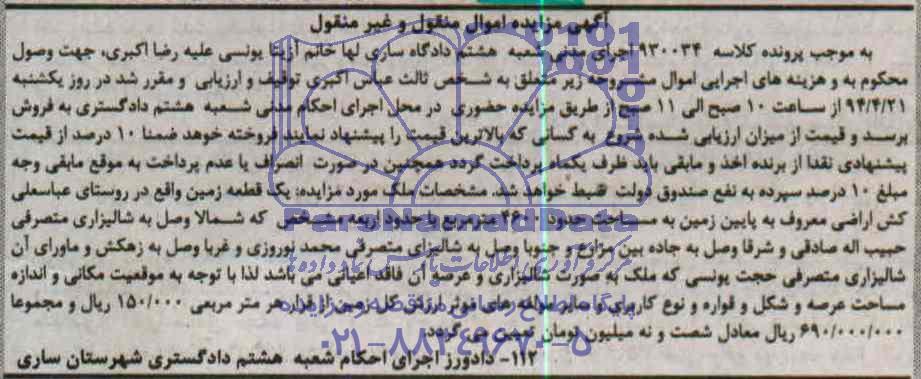 آگهی مزایده اموال منقول و غیر منقول
به موجب پرونده کلاسه ۹۳۰۰۳۴ اجرای مدنی شعبه هشتم دادگاه ساری لها خانم آزیتا یونسی علیه رضا اکبری، جهت وصول
محکوم به و هزینه های اجرایی اموال مشروحه زیر متعلق به شخص ثالث عباس اکبری توقیف و ارزیابی و مقرر شد در روز یکشنبه
۹۴/۴/۲۱ از ساعت ۱۰ صبح الی ۱۱ صبح از طریق مزایده حضوری در محل اجرای احکام مدنی شعبه هشتم دادگستری به فروش
برسد و قیمت از میزان ارزیابی شده شروع به کسانی که بالاترین قیمت را پیشنهاد نمایند فروخته خوهد ضمنا ۱۰ درصد از قیمت
پیشنهادی نقدا از برنده اخذ و مابقی باید ظرف یکماه پرداخت گردد همچنین در صورت انصراف یا عدم پرداخت به موقع مابقی وجه
مبلغ ۱۰ درصد سپرده به نفع صندوق دولت ضبط خواهد شد. مشخصات ملک مورد مزایده: یک قطعه زمین واقع در روستای عباسعلی
کش اراضی معروف به پایین زمین به مساحت حدود ۴۶۰۰ مترمربع با حدود اربعه مشخص که شمالا وصل به شالیزاری متصرفی
حبیب اله صادقی و شرقا وصل به جاده بین مزارع و جنوبا وصل به شالیزای متصرفی محمد نوروزی و غربا وصل به زهکش و ماورای آن
شالیزاری متصرفی حجت یونسی که ملک به صورت شالیزاری و عرصه آن فاقد اعیانی می باشد لذا با توجه به موقعیت مکانی و اندازه
مساحت عرصه و شکل و قواره و نوع کاربری و سایر مولفه های موثر ارزش کل زمین از قرار هر متر مربعی ۱۵۰/۰۰۰ ریال و مجموعا
۶۹۰/۰۰۰/۰۰۰ ریال معادل شصت و نه میلیون تومان تعیین می گردد.
۱۱۲- دادورز اجرای احکام شعبه هشتم دادگستری شهرستان ساری
ParsNamadData
مرکز فرآوری اطلاعات پارس نماد داده ها
پایگاه اطلاع رسانی مناقصه و مزایده
۰۲۱-۸۸۳۴۹۶۷۰-۵